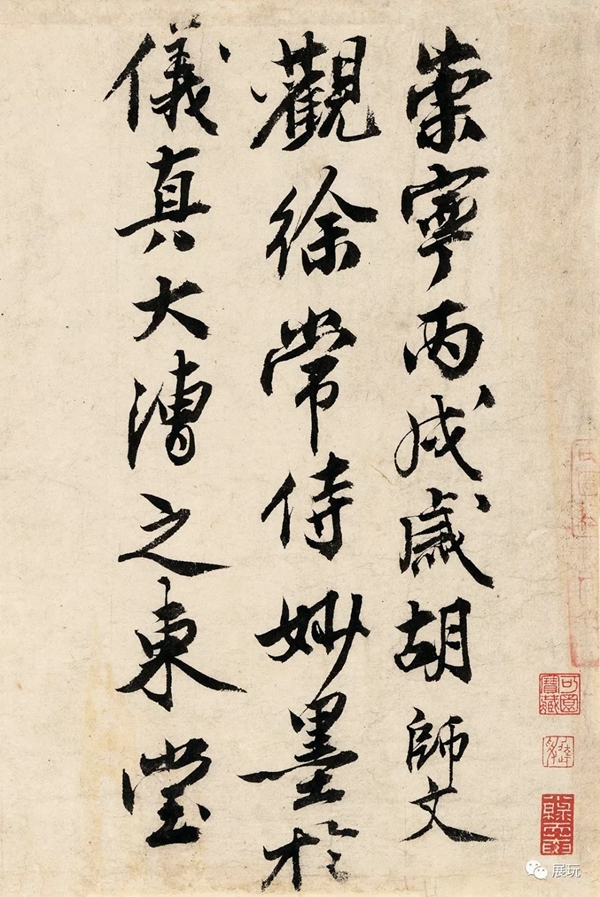 崇寧丙戌歲胡師文
觀徐常侍妙墨於
儀真大漕之東堂
展玩